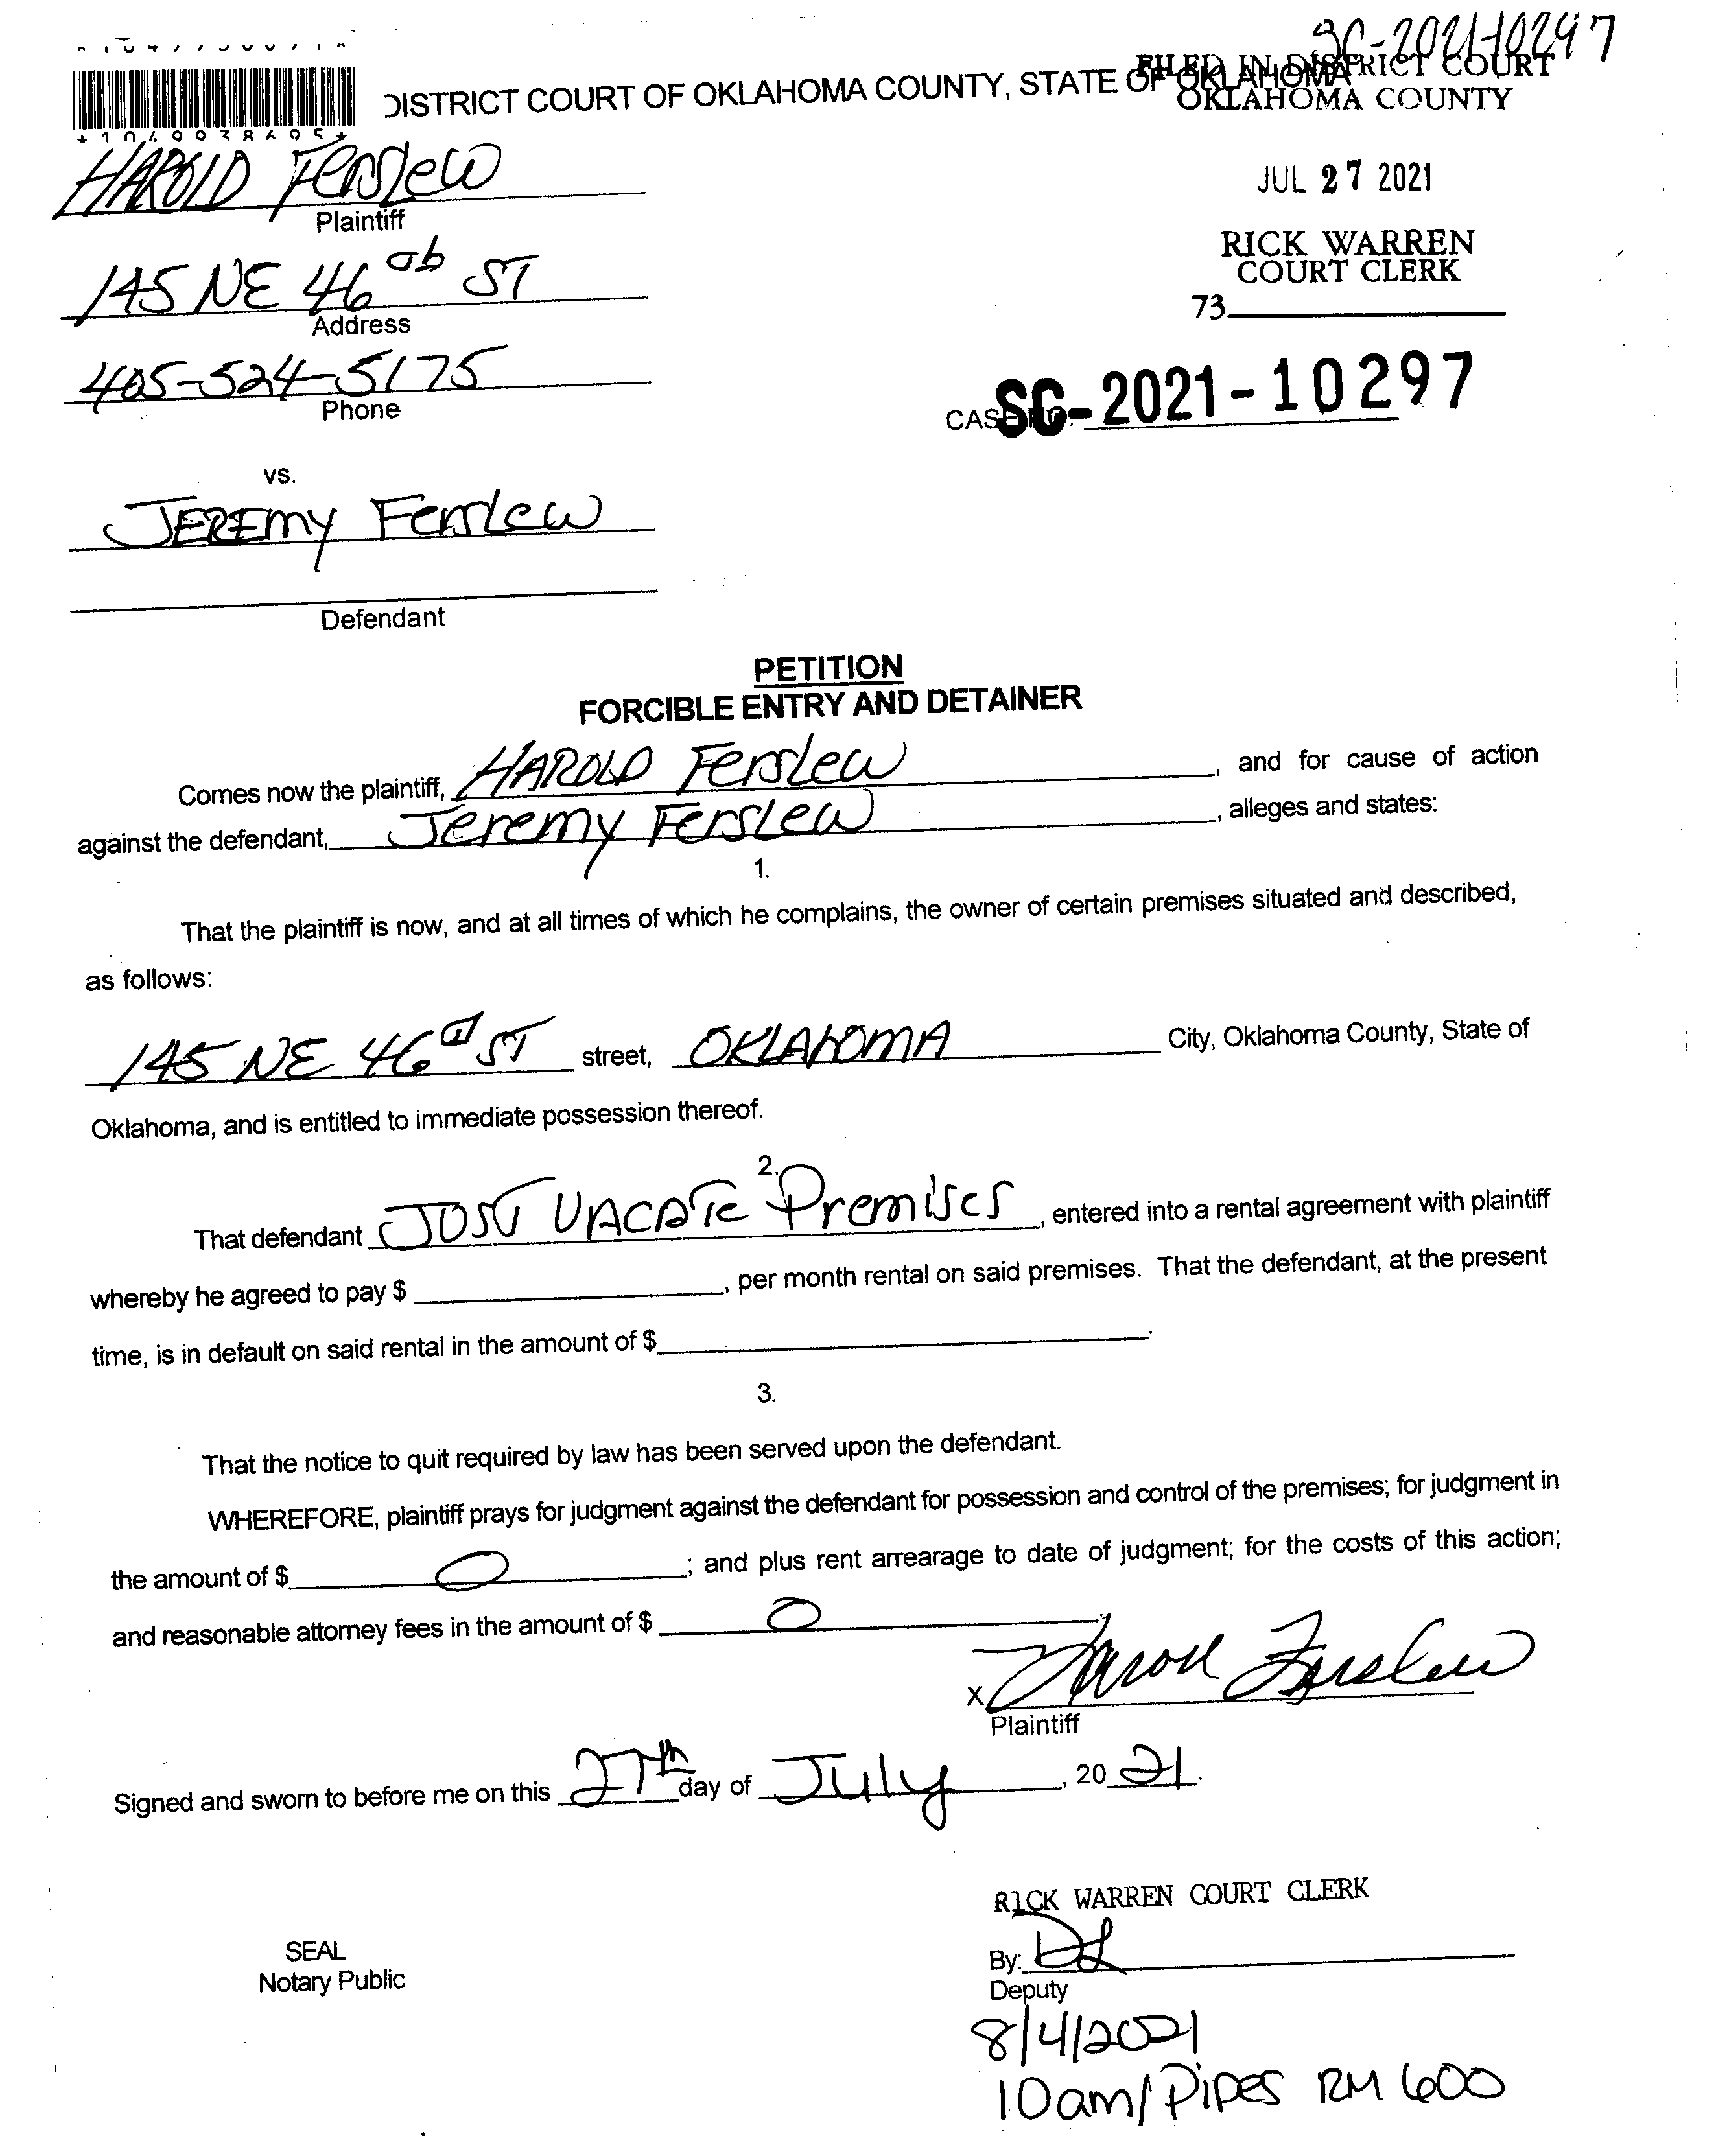 SC-2021-10297
DISTRICT COURT OF OKLAHOMA COUNTY, STATE OF OKLAHOMA
FILED IN DISTRICT COURT
OKLAHOMA COUNTY
JUL 27 2021
RICK WARREN
COURT CLERK
73
HAROLD Ferslew
Plaintiff
145 NE 46 ST
Address
405-524-5175
Phone
CASE NO. SC-2021-10297
vs.
JEREMY Ferslew
Defendant
PETITION
FORCIBLE ENTRY AND DETAINER
Comes now the plaintiff, HAROLD Ferslew, and for cause of action
against the defendant, Jeremy Ferslew, alleges and states:
1.
That the plaintiff is now, and at all times of which he complains, the owner of certain premises situated and described,
as follows:
145 NE 46 ST street, OKLAHOMA City, Oklahoma County, State of
Oklahoma, and is entitled to immediate possession thereof.
2.
That defendant JUST VACATE Premises, entered into a rental agreement with plaintiff
whereby he agreed to pay $ , per month rental on said premises. That the defendant, at the present
time, is in default on said rental in the amount of $ .
3.
That the notice to quit required by law has been served upon the defendant.
WHEREFORE, plaintiff prays for judgment against the defendant for possession and control of the premises; for judgment in
the amount of $ 0 ; and plus rent arrearage to date of judgment; for the costs of this action;
and reasonable attorney fees in the amount of $ 0
X Harold Ferslew
Plaintiff
Signed and sworn to before me on this 27th day of July, 20 21.
RICK WARREN COURT CLERK
SEAL
Notary Public
By: DL
Deputy
8/4/2021
10am/Pipes RM 600